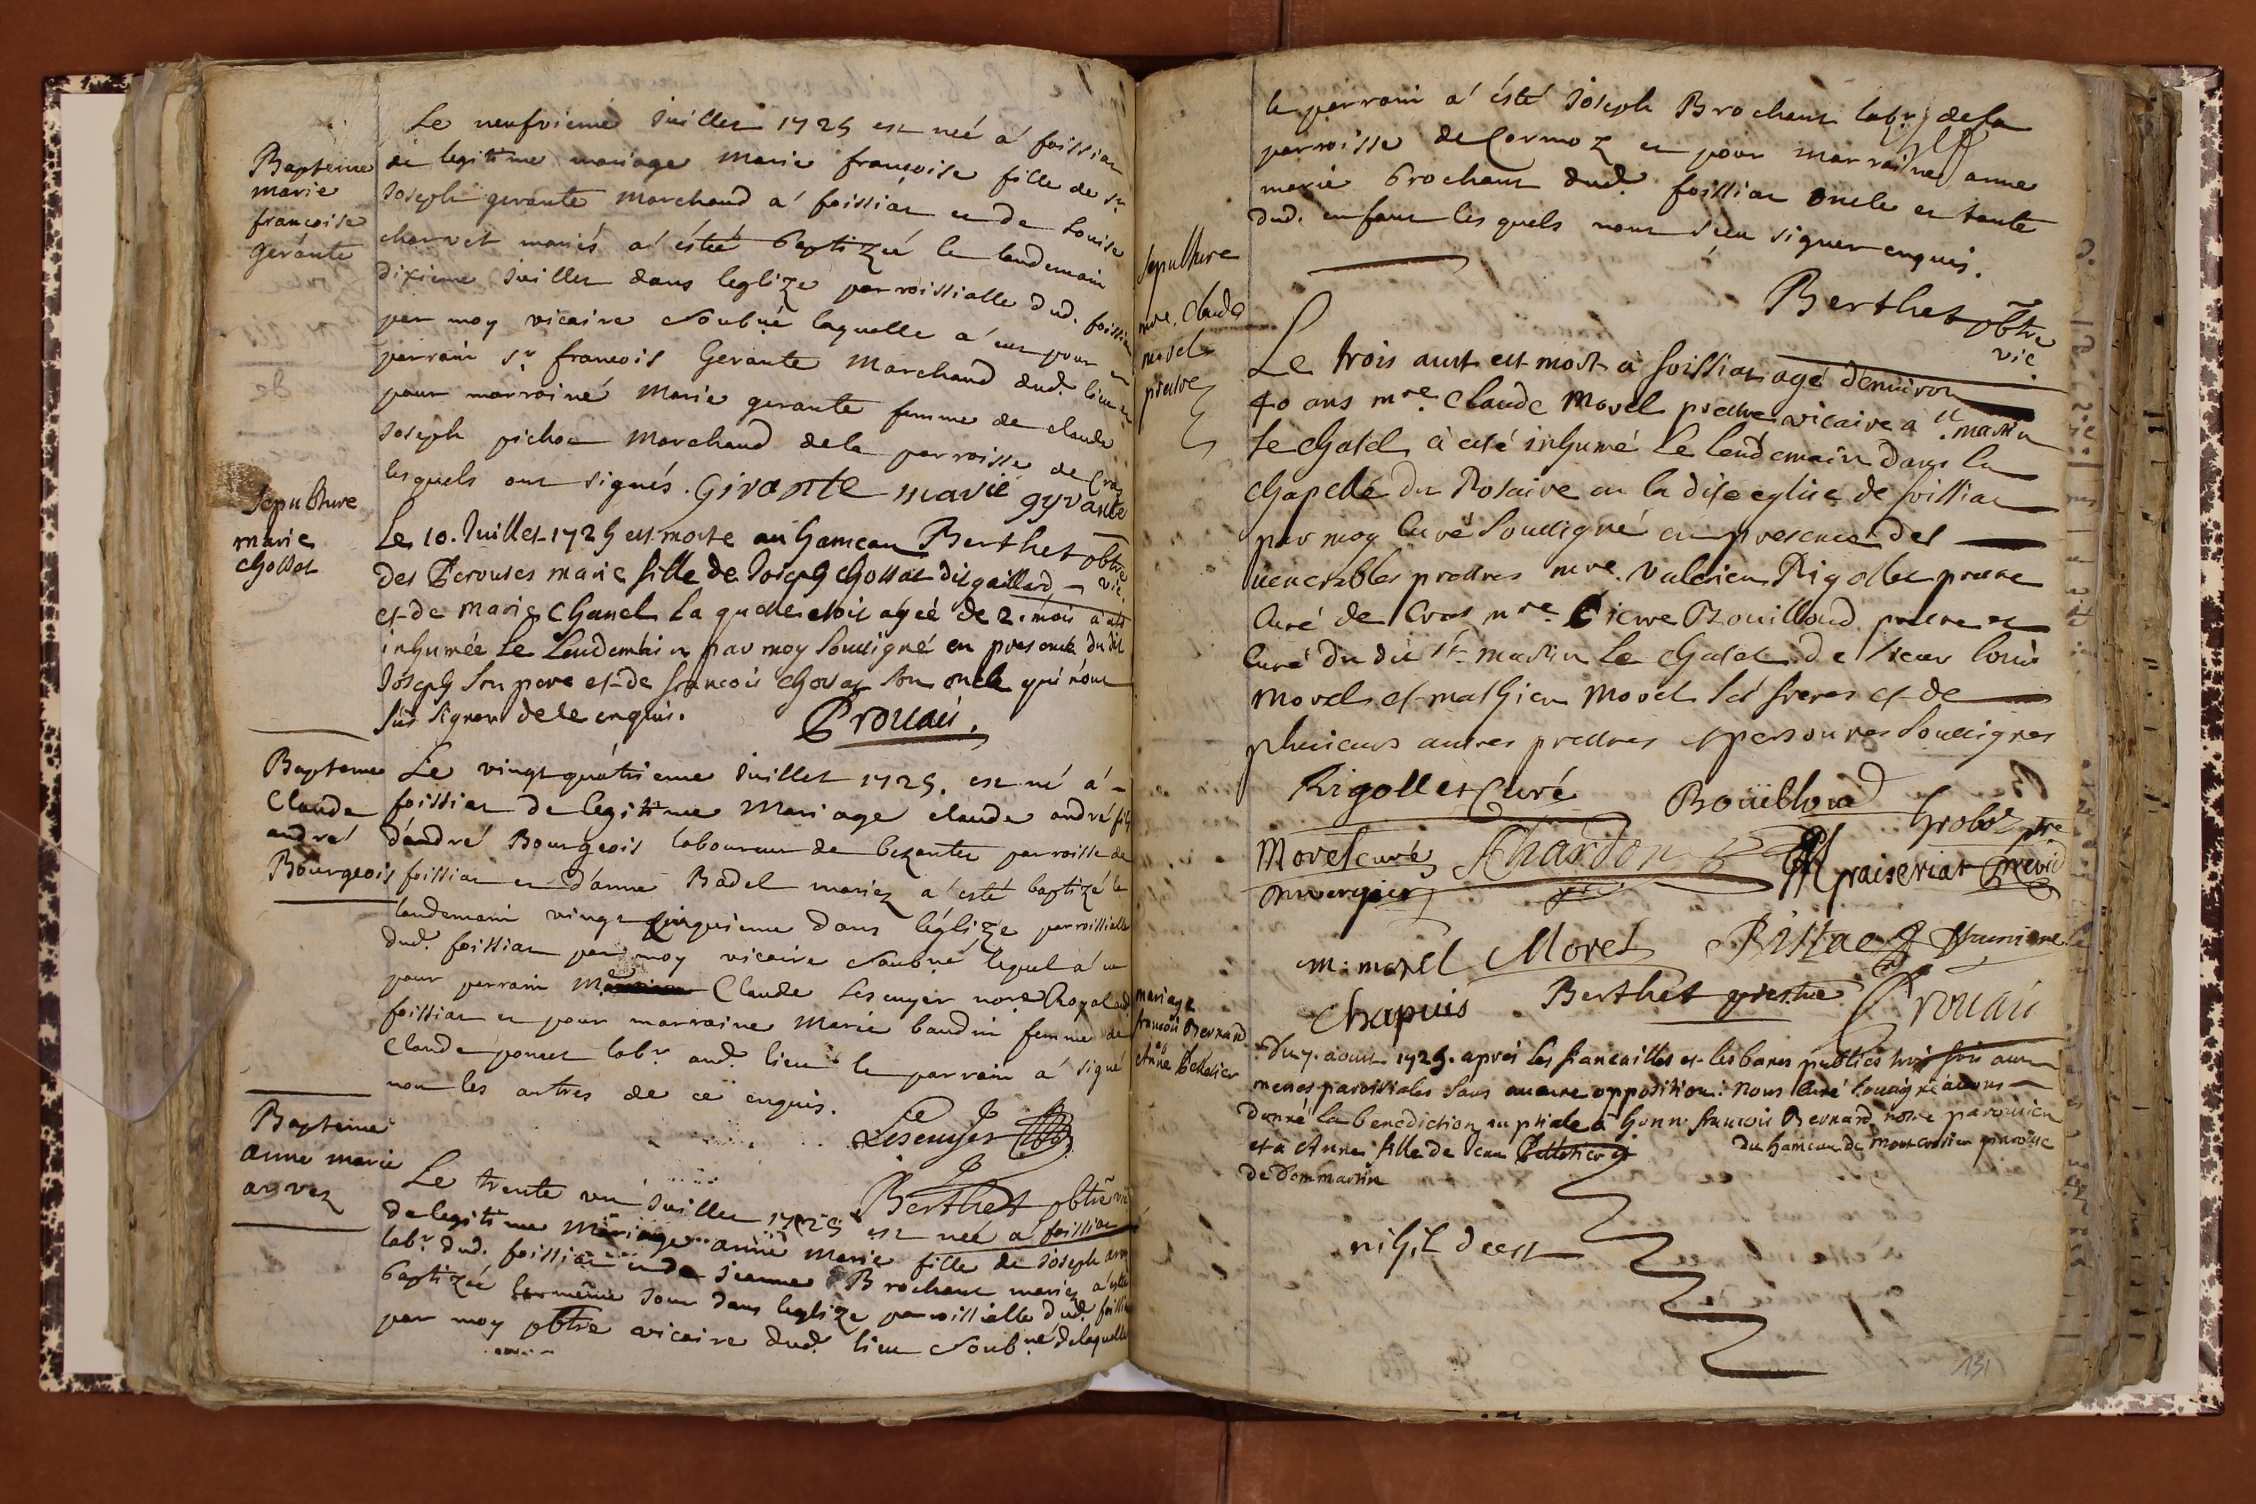 Bapteme
marie
francoise
gerante
Le neufvieme Juillet 1725 est neé a foissiat
de legitime mariage marie francoise fille de sr
Joseph gerante marchand a foissiat et de Louise
charvet mariés a estté baptizeé le lendemain
dixieme Juillet dans leglize parroissialle dud. foissiat
par moy vicaire soubné laquelle a eut pour
parrain sr francois Gerante marchand dud. lieu et
pour marraine marie gerante femme de claude
Joseph pichon marchand de la parroisse de Cras
lesquels ont signés. Girante marie gyrante
Berthet pbtre
vic.
Sepulture
marie
chossat
Le 10. Juillet 1725 est morte au hameau
des Perouses marie fille de Joseph chossat dit gaillard
et de marie chanel la quelle etoit ageé de 2. mois a eté
inhumée le lendemain par moy soussigné en presence dudit
Joseph son pere et de francois chossat son oncle qui n'ont
sus signer de ce enquis.
Prouaii.
Bapteme
Claude
andré
Bourgeois
Le vingt quatrieme Juillet 1725. est né a
foissiat de legitime mariage claude andré fils
d'andré Bourgeois laboureur de bezentet parroisse de
foissiat et d'anne Badel mariez a esté baptizé le
landemain vingt cinquieme dans léglize parroissialle
dud. foissiat par moy vicaire soubné lequel a eu
pour parrain Claude Lescuyer nore Royal aud
foissiat et pour marraine marie baudin femme de
Claude poncet labr aud. lieu le parrain a signé
non les autres de ce enquis.
Lescuyer
Berthet pbtre vic
Bapteme
anne marie
arvez
Le trente un Juillet 1725 est neé a foissiat
de legitime mariage anne marie fille de Joseph
labr dud. foissiat et de Jeanne Brochant mariez a esté
baptizeé le même jour dans leglize parroissialle dud. foissiat
par moy pbtre vicaire dud. lieu soubné de laquelle
le parrain a ésté Joseph Brochant labr de la
parroisse de Cormoz et pour marraine anne
marie Brochant dud. foissiat oncle et tante
dud. enfant lesquels n'ont sceu signer enquis.
Berthet pbtre
vic
Sepulture
mre. Claude
morel
prestre
Le trois aust est mort a foissiat agé d'environ
40 ans mre. Claude Morel prestre vicaire a st. martin
le chatel a eté inhumé le lendemain dans la
chapelle du Rosaire en la dite eglise de foissiat
par moy curé soussigné en presence des
venerables prestres mre. Valerien Rigollet prestre
curé de Cras mre. Pierre Bouilloud prestre et
curé du dit st. martin le chatel de sieur louis
morel et mathieu morel ses freres et de
plusieurs autres prestres et personnes soussignes
Rigollet Curé
Boüilloud
Groboz pre
Morel curé
Chardon
praiseriat
m: morel
Morel
Chapuis
Berthet prestre
Prouaii
mariage
francois Bernard
et
Anne Pelletier
Du 7. aoust 1725. aprés les fiancailles et les bancs publiés trois fois aux
messes paroissiales sans aucune opposition: Nous curé soussigné avons
donné la benediction nuptiale a honn. francois Bernard notre paroissien
et a Anne fille de Jean Pelletier du hameau de montcrosier paroisse
de Dommartin
nihil deest
131